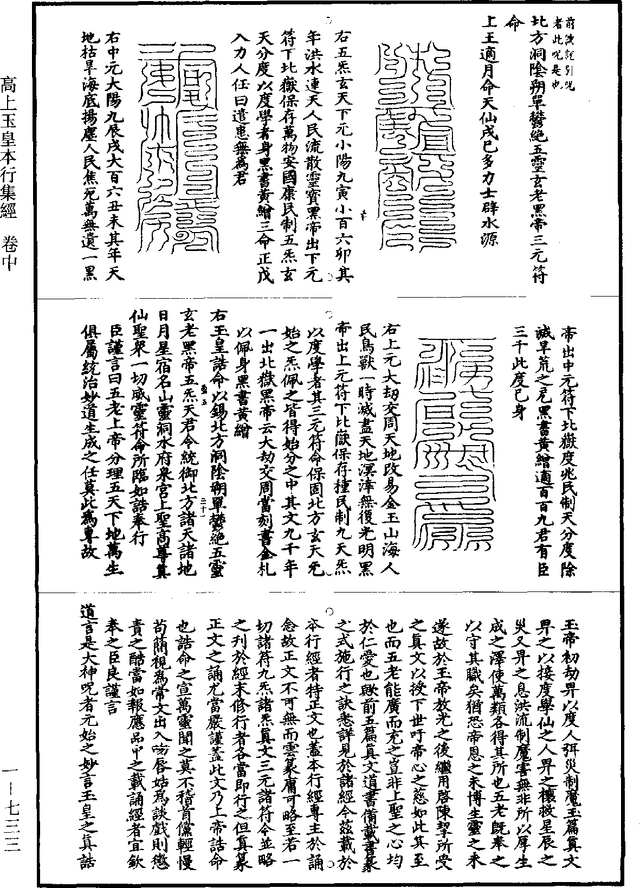 高上玉皇本行集經　卷中
前演經引咒
者此咒是也
北方洞陰朔單鬱絕五靈玄老黑帝三元符
命
上玉適月命天仙戍巳多力士群水源
右五炁玄天下元小陽九寅小百六卯其
年洪水連天人民流散靈寶黑帝出下元
符下比嶽保存萬物安國康民制五炁玄
天分度以度學者身黑書黃繒三命正戊
入力人任曰遣患無為君
右中元大陽九辰戌大百六丑未其年天
地枯旱海底揚塵人民焦死萬無遺一黑
帝出中元符下比嶽度兆民制天分度除
滅旱荒之戹黑書黃繒適百百九君有臣
三千此度已身
右上元大劫交周天地改易金玉山海人
民鳥獸一時滅盡天地溟涬無復光明黑
帝出上元符下比嶽保存種民制九天炁
以度學者其三元符命保固北方玄天元
始之炁佩之皆得始分之中其文九千年
一出北嶽黑帝云大劫交周當刻書金札
以佩身黑書黃繒
右玉皇誥命以錫北方洞陰朔單鬱絕五靈
玄老黑帝五炁天君令統御北方諸天諸地
日月星宿名山靈洞水府泉宮上聖高尊真
仙聖眾一切威靈符命所臨如誥奉行
臣謹言曰五老上帝分理五天下地萬生
俱屬統治妙道生成之任莫此為專故
玉帝初劫畀以度人弭災制魔玉篇真文
畀之以接度學仙之人畀之禳救星辰之
災又畀之息洪流制魔害無非所以厚生
成之澤使萬類各得其所也五老既奉之
以守其職矣猶恐帝恩之未博生靈之未
遂故於玉帝放光之後繼用啓陳挈所受
之真文以授下世吁帝心之慈如此其至
也而五老能廣而充之豈非上聖之心均
於仁愛也歟前五篇真文道書備載書篆
之式施行之訣悉詳見於諸經今茲載於
本行經者特正文也蓋本行經專主於誦
念故正文不可無而雲篆庸可略至若一
切諸符九炁諸炁真文三元諸符令並略
之刊於經末修行者各當即行之但真篆
正文之誦尤當嚴謹蓋此文乃上帝誥命
也誥命之宣萬靈聞之莫不稽首儻輕慢
苟簡視為常文出入吻唇姑為談戲則愆
責之酷當如報應品中之載誦經者宜欽
奉之臣良謹言
道言是大神咒者元始之妙言玉皇之真誥
一－七三三